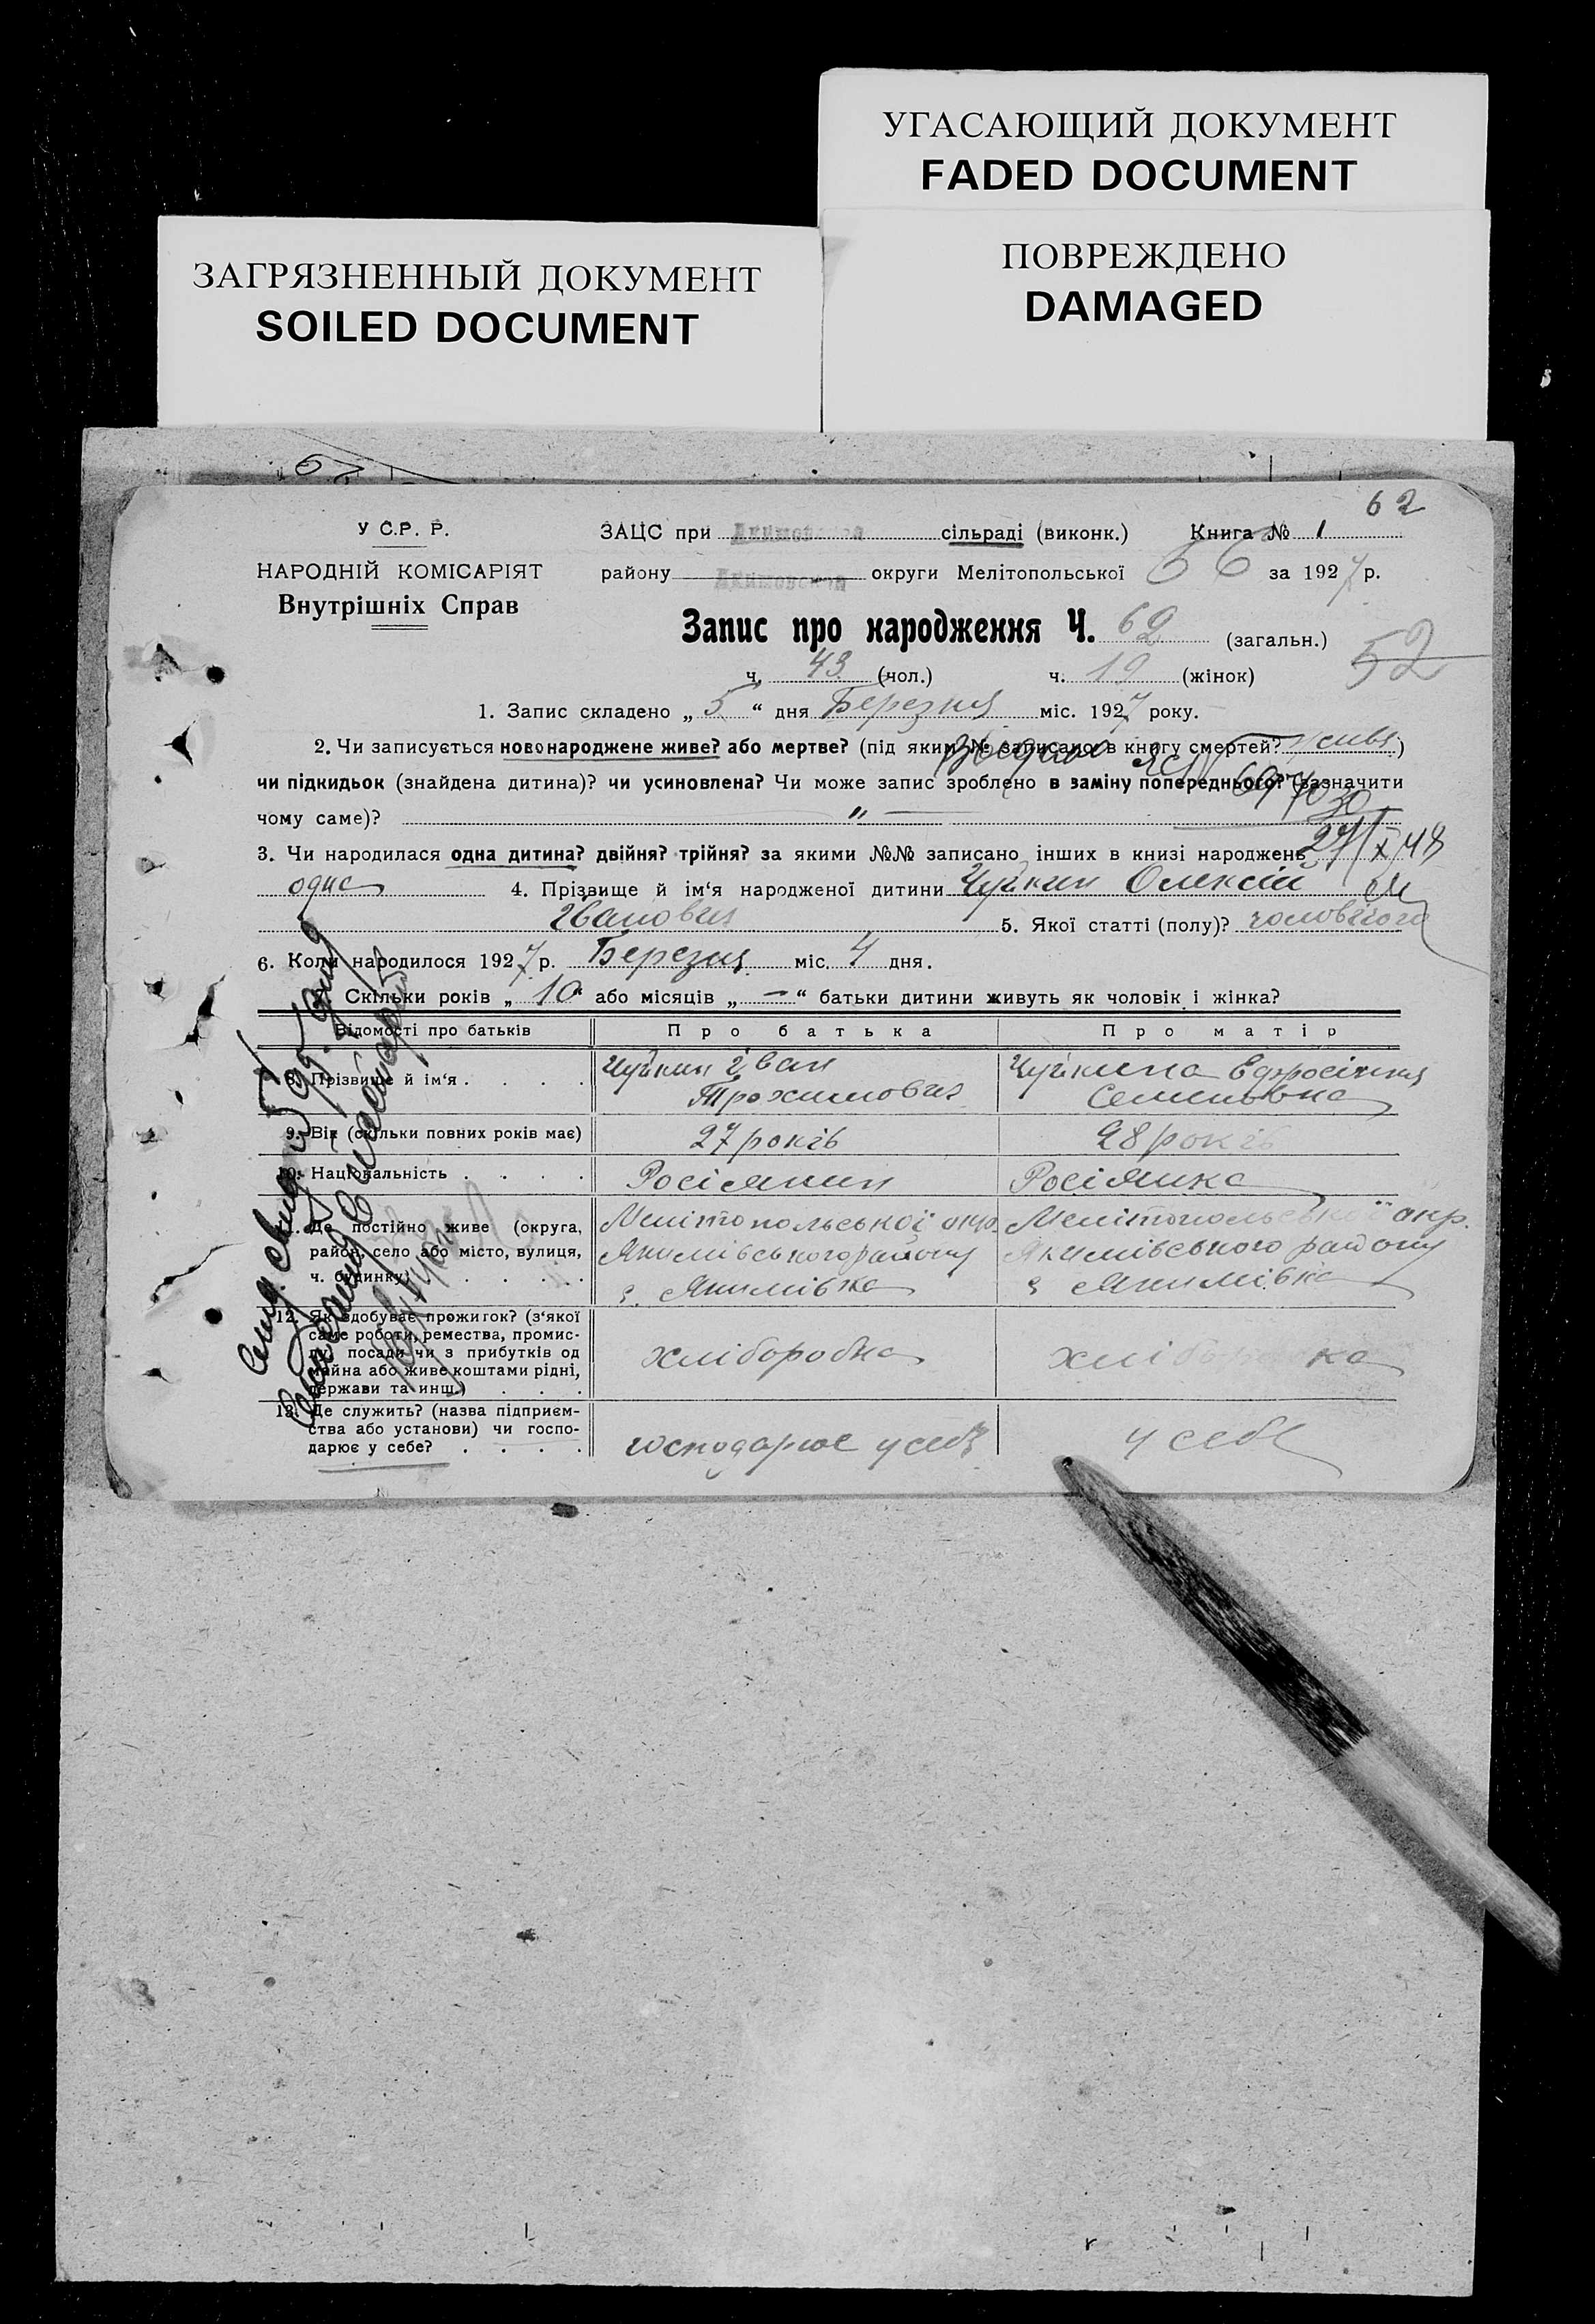 УГАСАЮЩИЙ ДОКУМЕНТ
FADED DOCUMENT
ЗАГРЯЗНЕННЫЙ ДОКУМЕНТ
SOILED DOCUMENT
ПОВРЕЖДЕНО
DAMAGED
62
У С.Р. Р.
НАРОДНІЙ КОМІСАРІЯТ
Внутрішніх Справ
ЗАЦС при сільраді (виконк.) Книга № 1
району округи Мелітопольської 66 за 1927 р.
Запис про народження Ч. 62 (загальн.)
52
ч. 43 (чол.) ч. 19 (жінок)
1. Запис складено „ 5 “ дня Березня міс. 1927 року.
2. Чи записується новонароджене живе? або мертве? (під яким № записано в книгу смертей? живе)
чи підкидьок (знайдена дитина)? чи усиновлена? Чи може запис зроблено в заміну попереднього? (зазначити
чому саме)? „
27/X 48
3. Чи народилася одна дитина? двійня? трійня? за якими №№ записано інших в книзі народжень
одна 4. Прізвище й ім‘я народженої дитини Чуйкин Олексій
Іванович 5. Якої статті (полу)? чоловічого
6. Коли народилося 1927 р. Березня міс. 4 дня.
Скільки років „ 10 “ або місяців „ — “ батьки дитини живуть як чоловік і жінка?
Відомості про батьків Про батька Про матір
8. Прізвище й ім‘я . . . . Чуйкин Іван Трохимович Чуйкина Єфросінія Семеновна
9. Вік (скільки повних років має) 27 років 28 років
10. Національність . . . . Росіянин Росіянка
11. Де постійно живе (округа, район, село або місто, вулиця, ч. будинку) . . . . Мелітопольської окр. Якимівського району с. Якимівка Мелітопольської окр. Якимівського району с. Якимівка
12. Як здобуває прожиток? (з‘якої саме роботи, ремества, промислу, посади чи з прибутків од майна або живе коштами рідні, держави та инш.) . . . хлібороба
13. Де служить? (назва підприємства або установи) чи господарює у себе? . . . . господарює у себе у себе